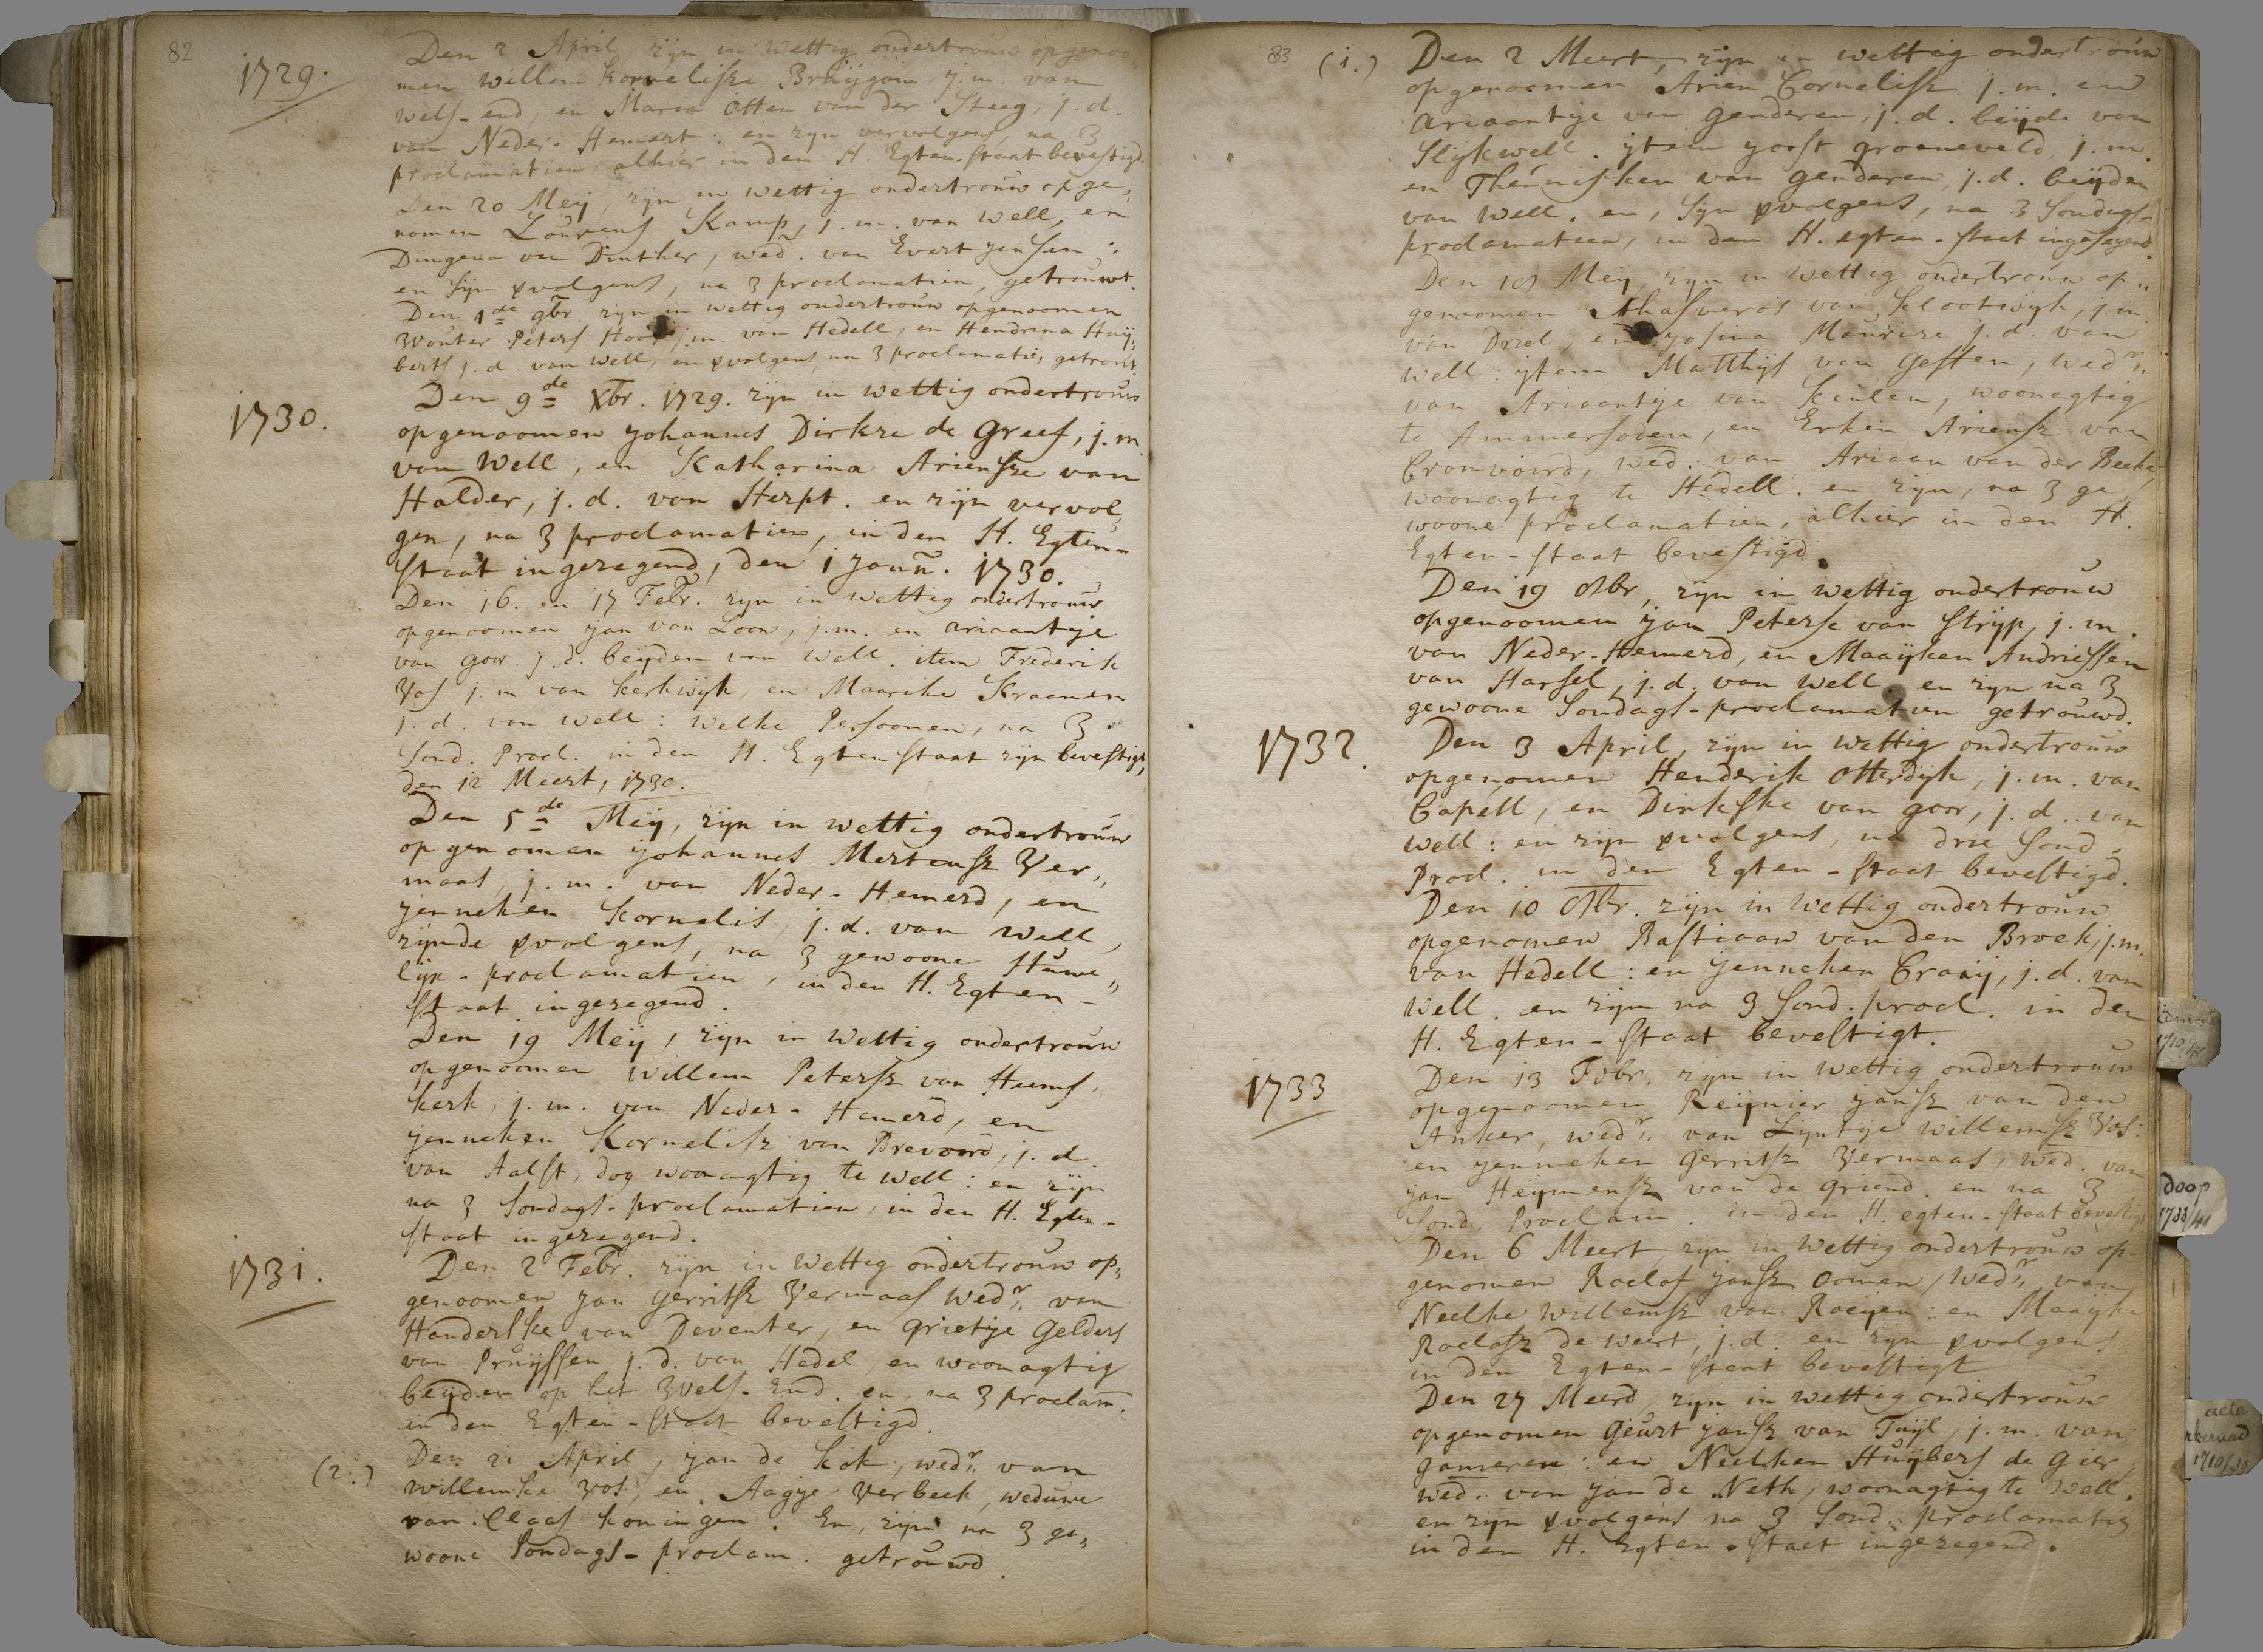 82
1729.
Den 2 April, zijn in wettig ondertrouw opgenoo-
men Willem Kornelisze Bruijgom, j.m. van
wels-end, en Maria Otten van der Steeg, j.d.
van Neder-Hemert: en zijn vervolgens, na 3
proclamatien, alhier in den H. Egten-staat bevestigd.
Den 20 Meij, zijn in wettig ondertrouw opge„
nomen Lourens Kamp, j.m. van Well, en
Dingena van Dinther, wed. van Evert Jansen„
en sijn vvolgens, na 3 proclamatien, getrouwt.
Den 1de 9br. zijn in wettig ondertrouw opgenoomen
Wouter Peters j.m. van Hedell, en Hendrina Huij„
berts j.d. van Well, en vvolgens, na 3 proclamatiën getrouwt
1730.
Den 9de Xbr. 1729. zijn in wettig ondertrouw
opgenoomen Johannes Dirkze de Greef, j.m.
van Well, en Katharina Ariensze van
Halder, j.d. van Herpt. en zijn vervol„
gen, na 3 proclamatien, in den H. Egten-
staat ingezegend, den 1 Janu. 1730.
Den 16. en 17 Febr. zijn in wettig ondertrouw
opgenoomen Jan van Loon, j.m. en Ariaantje
van Goor. j.d. beijden van Well. item Frederik
Vos j.m. van Kerkwijk, en Maarike Kraamen
j.d. van Well: welke Persoonen, na 3
Sond. Procl. in den H. Egtenstaat zijn bevestigt,
den 12 Meert, 1730.
Den 5de Meij, zijn in wettig ondertrouw
opgenomen Johannes Mertensz Ver„
maas, j.m. van Neder-Hemerd, en
Jenneken Kornelis, j.d. van Well,
zijnde vvolgens, na 3 gewoone Huwe„
lijx-proclamatien, in den H. Egten-
staat ingezegend.
Den 19 Meij, zijn in wettig ondertrouw
opgenoomen Willem Petersz van Heems„
kerk, j.m. van Neder-Hemerd, en
Jenneken Kornelisz van Brevoord, j.d.
van Aalst, dog woonagtig te Well: en zijn
na 3 Sondags-proclamatien, in den H. Egten-
staat ingezegend.
1731.
Den 2 Febr. zijn in wettig ondertrouw op„
genoomen Jan Gerritsz Vermaas wedr„ van
Handerske van Deventer, en Grietje Gelders
van Pruijssen j.d. van Hedel, en woonagtig
beijden op het Wels-End. en, na 3 proclam.
in den Egten-staat bevestigd.
(2.)
Den 21 April, Jan de Kok, wedr„ van
Willemke Vos, en Aagje Verbeek, weduwe
van Claas Koningen. En, zijn na 3 ge„
woone Sondags-proclam. getrouwd.
83 (1.)
Den 2 Meert, zijn in wettig ondertrouw
opgenoomen Arien Cornelisz j.m. en
Ariaantije van Genderen, j.d. beijde van
Slijkwell. ijtem Joost Groeneveld, j.m.
en Theunisken van Genderen, j.d. beijden
van Well. en, sijn vvolgens, na 3 Sondags-
proclamatien, in den H. egten-staet ingesegend.
Den 18 Meij, zijn in wettig ondertrouw op„
genoomen Ahasveros van Slootwijk, j.m.
van Driel, en Josina Maurize j.d. van
Well: ijtem Matthijs van Gessen, wedr„
van Ariaantije van Keulen, woonagtig
te Ammersoden, en Erken Ariensz van
Cronvoird, wed. van Ariaan van der Beeke,
woonagtig te Hedell. en zijn, na 3 ge„
woone proclamatien, alhier in den H.
Egten-staat bevestigd.
Den 19 8br, zijn in wettig ondertrouw
opgenoomen Jan Peterse van Strijp, j.m.
van Neder-Hemerd, en Maaijken Andriessen
van Harsel, j.d. van Well en zijn na 3
gewoone Sondags-proclamatien getrouwd.
1732.
Den 3 April, zijn in wettig ondertrouw
opgenomen Henderik Otterdijk, j.m. van
Capell, en Dirkske van Goor, j.d.. van
Well: en zijn vvolgens, na drie Sond-
Procl. in den Egten-staat bevestigd.
Den 10 8br. zijn in wettig ondertrouw
opgenomen Bastiaan van den Broek, j.m.
van Hedell: en Jenneken Craaij, j.d. van
Well. en zijn na 3 Sond. procl. in den
H. Egten-staat bevestigt.
1733
Den 13 Febr. zijn in wettig ondertrouw
opgenoomen Reijnier Jansz van den
Anker, wedr„ van Lijntije Willemsz Vos:
en Jenneken Gerritsz Vermaas, wed. van
Jan Heijmensz van de Griend. en na 3
Sond. Proclam. in den H. egten-staat bevestigt
Den 6 Meert, zijn in wettig ondertrouw op-
genomen Roelof Jansz Oomen, wedr„ van
Neelke Willemsz van Raeijen: en Maaijke
Roelofsz de Weert, j.d. en zijn vvolgens
in den Egten-staat bevestigt
Den 27 Meerd, zijn in wettig ondertrouw
opgenomen Geurt Jansz van Tuijl, j.m. van
Gameren: en Neelken Huijbers de Gier,
wed. van Jan de Neth, woonagtig te Well.
en zijn vvolgens na 3 Sond. proclamatien
in den H. Egten-staet ingezegend.
doop
1733/41
acta
kerkeraad
1710/